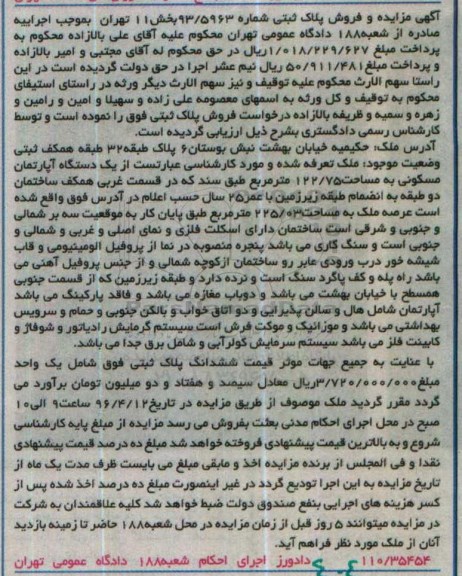 آگهی مزایده و فروش پلاک ثبتی شماره ۹۳/۵۹۶۳بخش۱۱ تهران بموجب اجراییه
صادره از شعبه۱۸۸ دادگاه عمومی تهران محکوم علیه آقای علی بالازاده محکوم به
پرداخت مبلغ ۱/۰۱۸/۲۲۹/۶۲۷ریال در حق محکوم له آقای مجتبی و امیر بالازاده
و پرداخت مبلغ۵۰/۹۱۱/۴۸۱ ریال نیم عشر اجرا در حق دولت گردیده است در این
راستا سهم الارث محکوم علیه توقیف و نیز سهم الارث دیگر ورثه در راستای استیفای
محکوم به توقیف و کل ورثه به اسمهای معصومه علی زاده و سهیلا و امین و رامین و
زهره و سمیه و ظریفه بالازاده درخواست فروش پلاک ثبتی فوق را نموده است و توسط
کارشناس رسمی دادگستری بشرح ذیل ارزیابی گردیده است.
آدرس ملک: حکیمیه خیابان بهشت نبش بوستان۶ پلاک ۳۲طبقه همکف ثبتی
وضعیت موجود: ملک تعرفه شده و مورد کارشناسی عبارتست از یک دستگاه آپارتمان
مسکونی به مساحت۱۲۲/۷۵ مترمربع طبق سند که در قسمت غربی همکف ساختمان
دو طبقه به انضمام طبقه زیرزمین با عمر۲۵ سال حسب اعلام در آدرس فوق واقع شده
است عرصه ملک به مساحت۲۲۵/۰۳ مترمربع طبق پایان کار به موقعیت سه بر شمالی
و جنوبی و شرقی است ساختمان دارای اسکلت فلزی و نمای اصلی و غربی و شمالی و
جنوبی است و سنگ کاری می باشد پنجره منصوبه در نما از پروفیل الومینیومی و قاب
شیشه خور درب ورودی عابر رو ساختمان ازکوچه شمالی و از جنس پروفیل آهنی می
باشد راه پله و کف پاگرد سنگ است و نرده دارد و طبقه زیرزمین که از قسمت جنوبی
همسطح با خیابان بهشت می باشد و دوباب مغازه می باشد و فاقد پارکینگ می باشد
آپارتمان شامل هال و سالن پذیرایی و دو اتاق خواب و بالکن جنوبی و حمام و سرویس
بهداشتی می باشد و موزائیک و موکت فرش است سیستم گرمایش رادیاتور و شوفاژ و
کابینت فلز می باشد سیستم سرمایش کولرآبی و شامل برق جدا می باشد.
با عنایت به جمیع جهات موثر قیمت ششدانگ پلاک ثبتی فوق شامل یک واحد
مبلغ۳/۷۲۰/۰۰۰/۰۰۰ریال معادل سیصد و هفتاد و دو میلیون تومان برآورد می
گردد مقرر گردید ملک موصوف از طریق مزایده در تاریخ۹۶/۴/۱۲ ساعت۹ الی۱۰
صبح در محل اجرای احکام مدنی بعثت بفروش می رسد مزایده از مبلغ پایه کارشناسی
شروع و به بالاترین قیمت پیشنهادی فروخته خواهد شد مبلغ ده درصد قیمت پیشنهادی
نقدا و فی المجلس از برنده مزایده اخذ و مابقی مبلغ می بایست ظرف مدت یک ماه از
تاریخ مزایده به این اجرا تودیع گردد در غیر اینصورت مبلغ ده درصد اخذ شده پس از
کسر هزینه های اجرایی بنفع صندوق دولت ضبط خواهد شد کلیه علاقمندان به شرکت
در مزایده میتوانند ۵ روز قبل از زمان مزایده در محل شعبه۱۸۸ حاضر تا زمینه بازدید
آنان از ملک مورد نظر فراهم آید.
۱۱۰/۳۵۴۵۴ دادورز اجرای احکام شعبه۱۸۸ دادگاه عمومی تهران